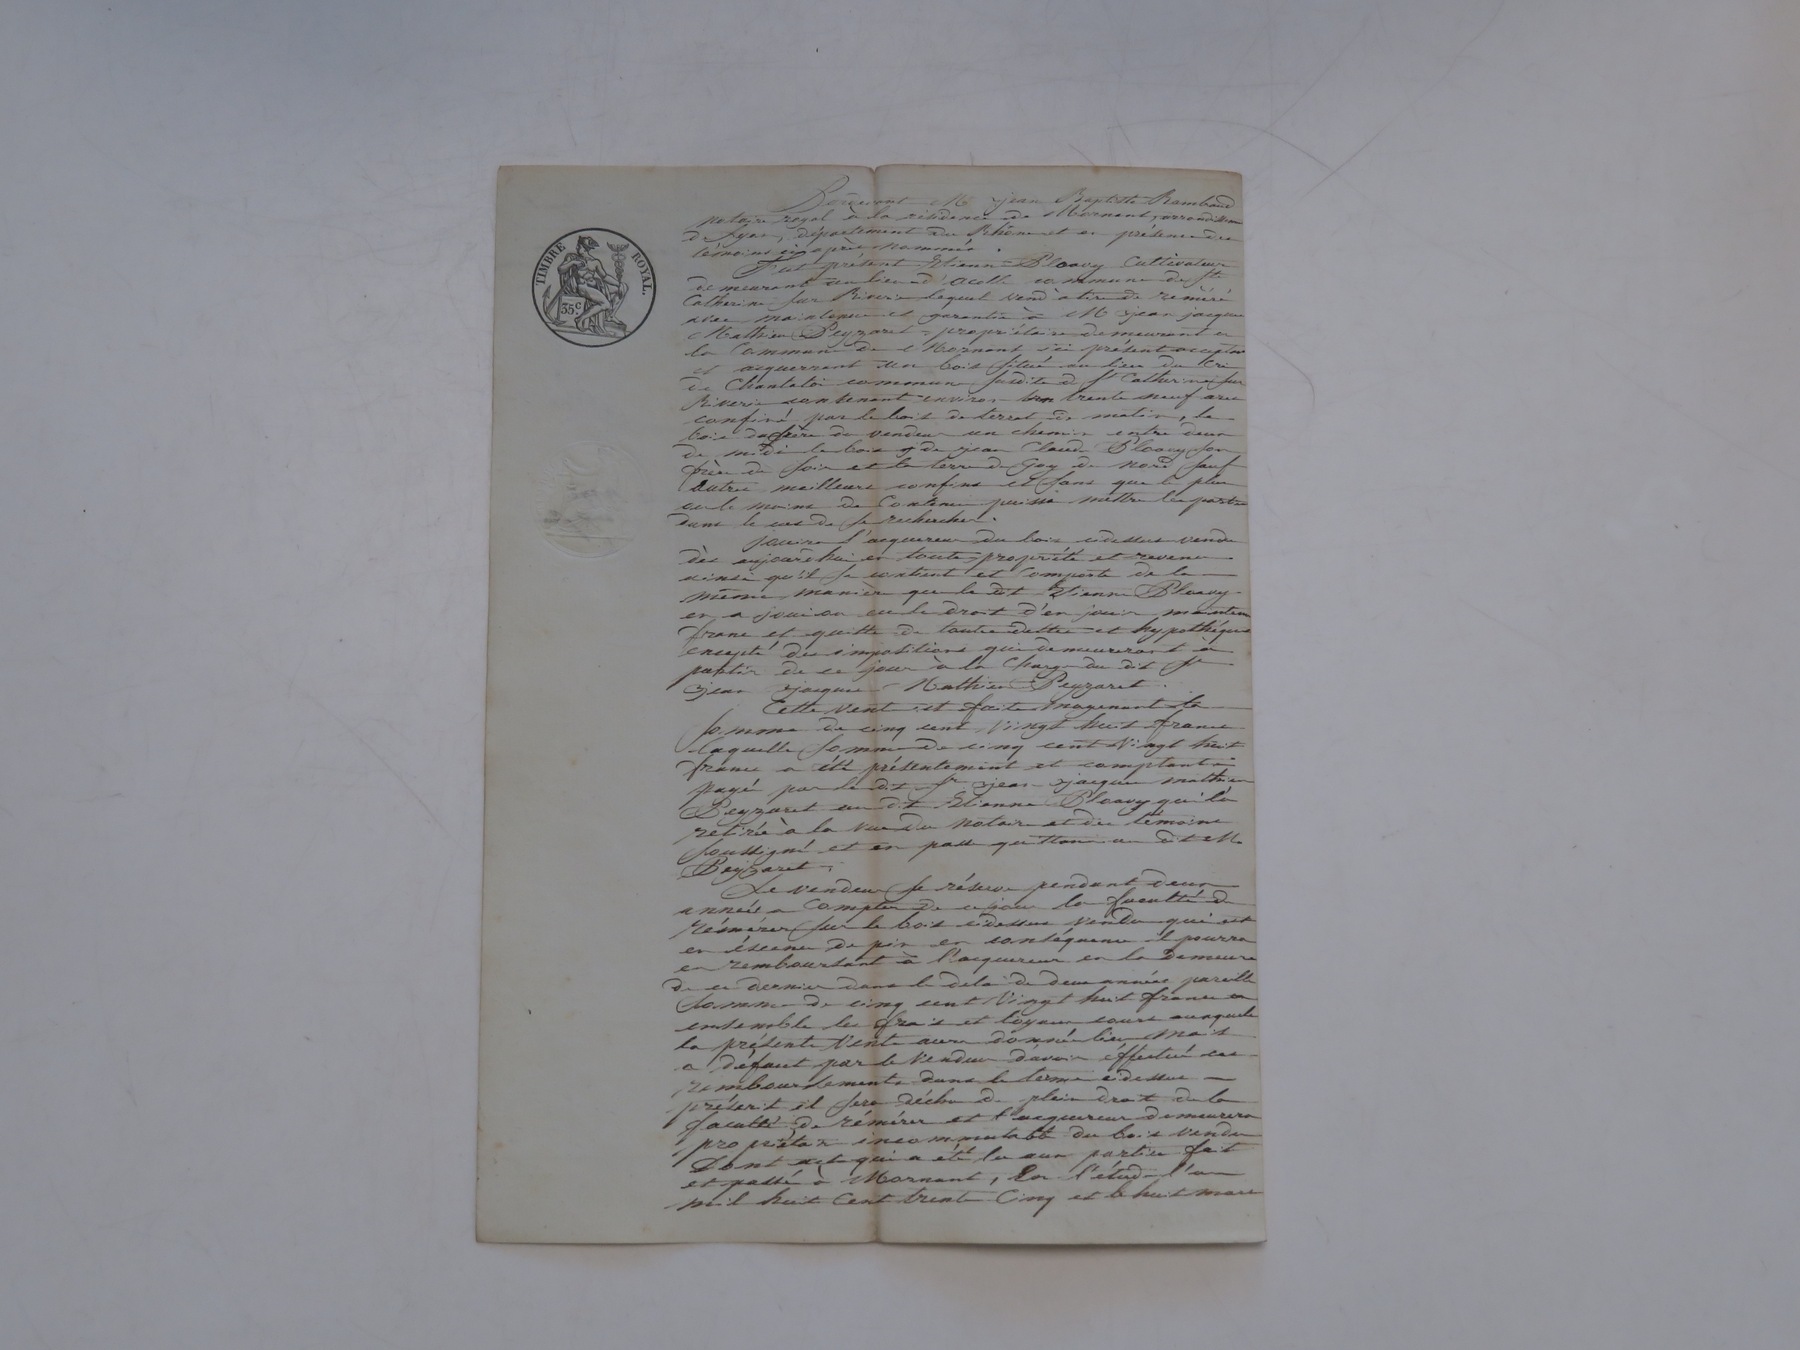 TIMBRE ROYAL.
35 c
Pardevant Me jean Baptiste Rambaud
notaire royal à la résidence de Mornant, arrondissement
de Lyon, département du Rhône et en présence des
témoins ci après nommés.
Fut présent Etienne Ploavy Cultivateur
demeurant au lieu d' commune de St
Catherine sur Riverie lequel vend a titre de réméré
avec maintenue et garantie à M jean jacque
Mathieu Peyzaret propriétaire demeurant a
la Commune de Mornant ici présent acceptant
et acquerrant un bois situé au lieu du
de commune susdite de St Catherine sur
Riverie contenant environ trente neuf ares
confiné par le bois de terret de matin, le
bois du frère du vendeur un chemin entre deux
de midi le bois de jean Claude Ploavy son
frère de soir et la terre de Goy de nord sauf
autres meilleurs confins et sans que le plus
ou le moins de Contenu puisse mettre les parties
dans le cas de se rechercher.
jouira l'acquereur du bois cidessus vendu
dès aujourd'hui en toute propriété et revenu
ainsi qu'il se contient et Comporte de la
même manière que le dit Etienne Ploavy
en a joui ou eu le droit d'en jouir maintenu
franc et quitte de toutes dettes et hypothéques
excepté des impositions qui demeureront à
partir de ce jour à la Charge du dit Sr
jean jacque Mathieu Peyzaret.
Cette vente est faite moyenant la
somme de cinq cent vingt huit francs
laquelle somme de cinq cent vingt huit
francs a été présentement et comptant
payé par le dit Sr jean jacque mathieu
Peyzaret au dit Etienne Ploavy qui l'a
retirée à la vue du notaire et des témoins
soussigné et en passe quittance au dit M.
Peyzaret.
Le vendeur se réserve pendant deux
années a Compter de ce jour la faculté de
réémérer sur le bois cidessus vendu qui est
en éscence de pin en conséquence il pourra
en remboursant à l'acquereur en la demeure
de ce dernier dans le delai de deux années pareille
somme de cinq cent vingt huit francs
ensemble les frais et loyaux couts auxquels
la présente Vente aura donnée lieu mais
a défaut par le vendeur d'avoir éffectué ces
remboursements dans le terme cidessus
préscrit il sera déchu de plein droit de la
faculté de rémérer et l'acquereur demeurera
propriétaire incommutable du bois vendu
Dont acte qui a été lu aux parties fait
et passé à Mornant, En l'étude l'an
mil huit Cent trente Cinq et le huit mars